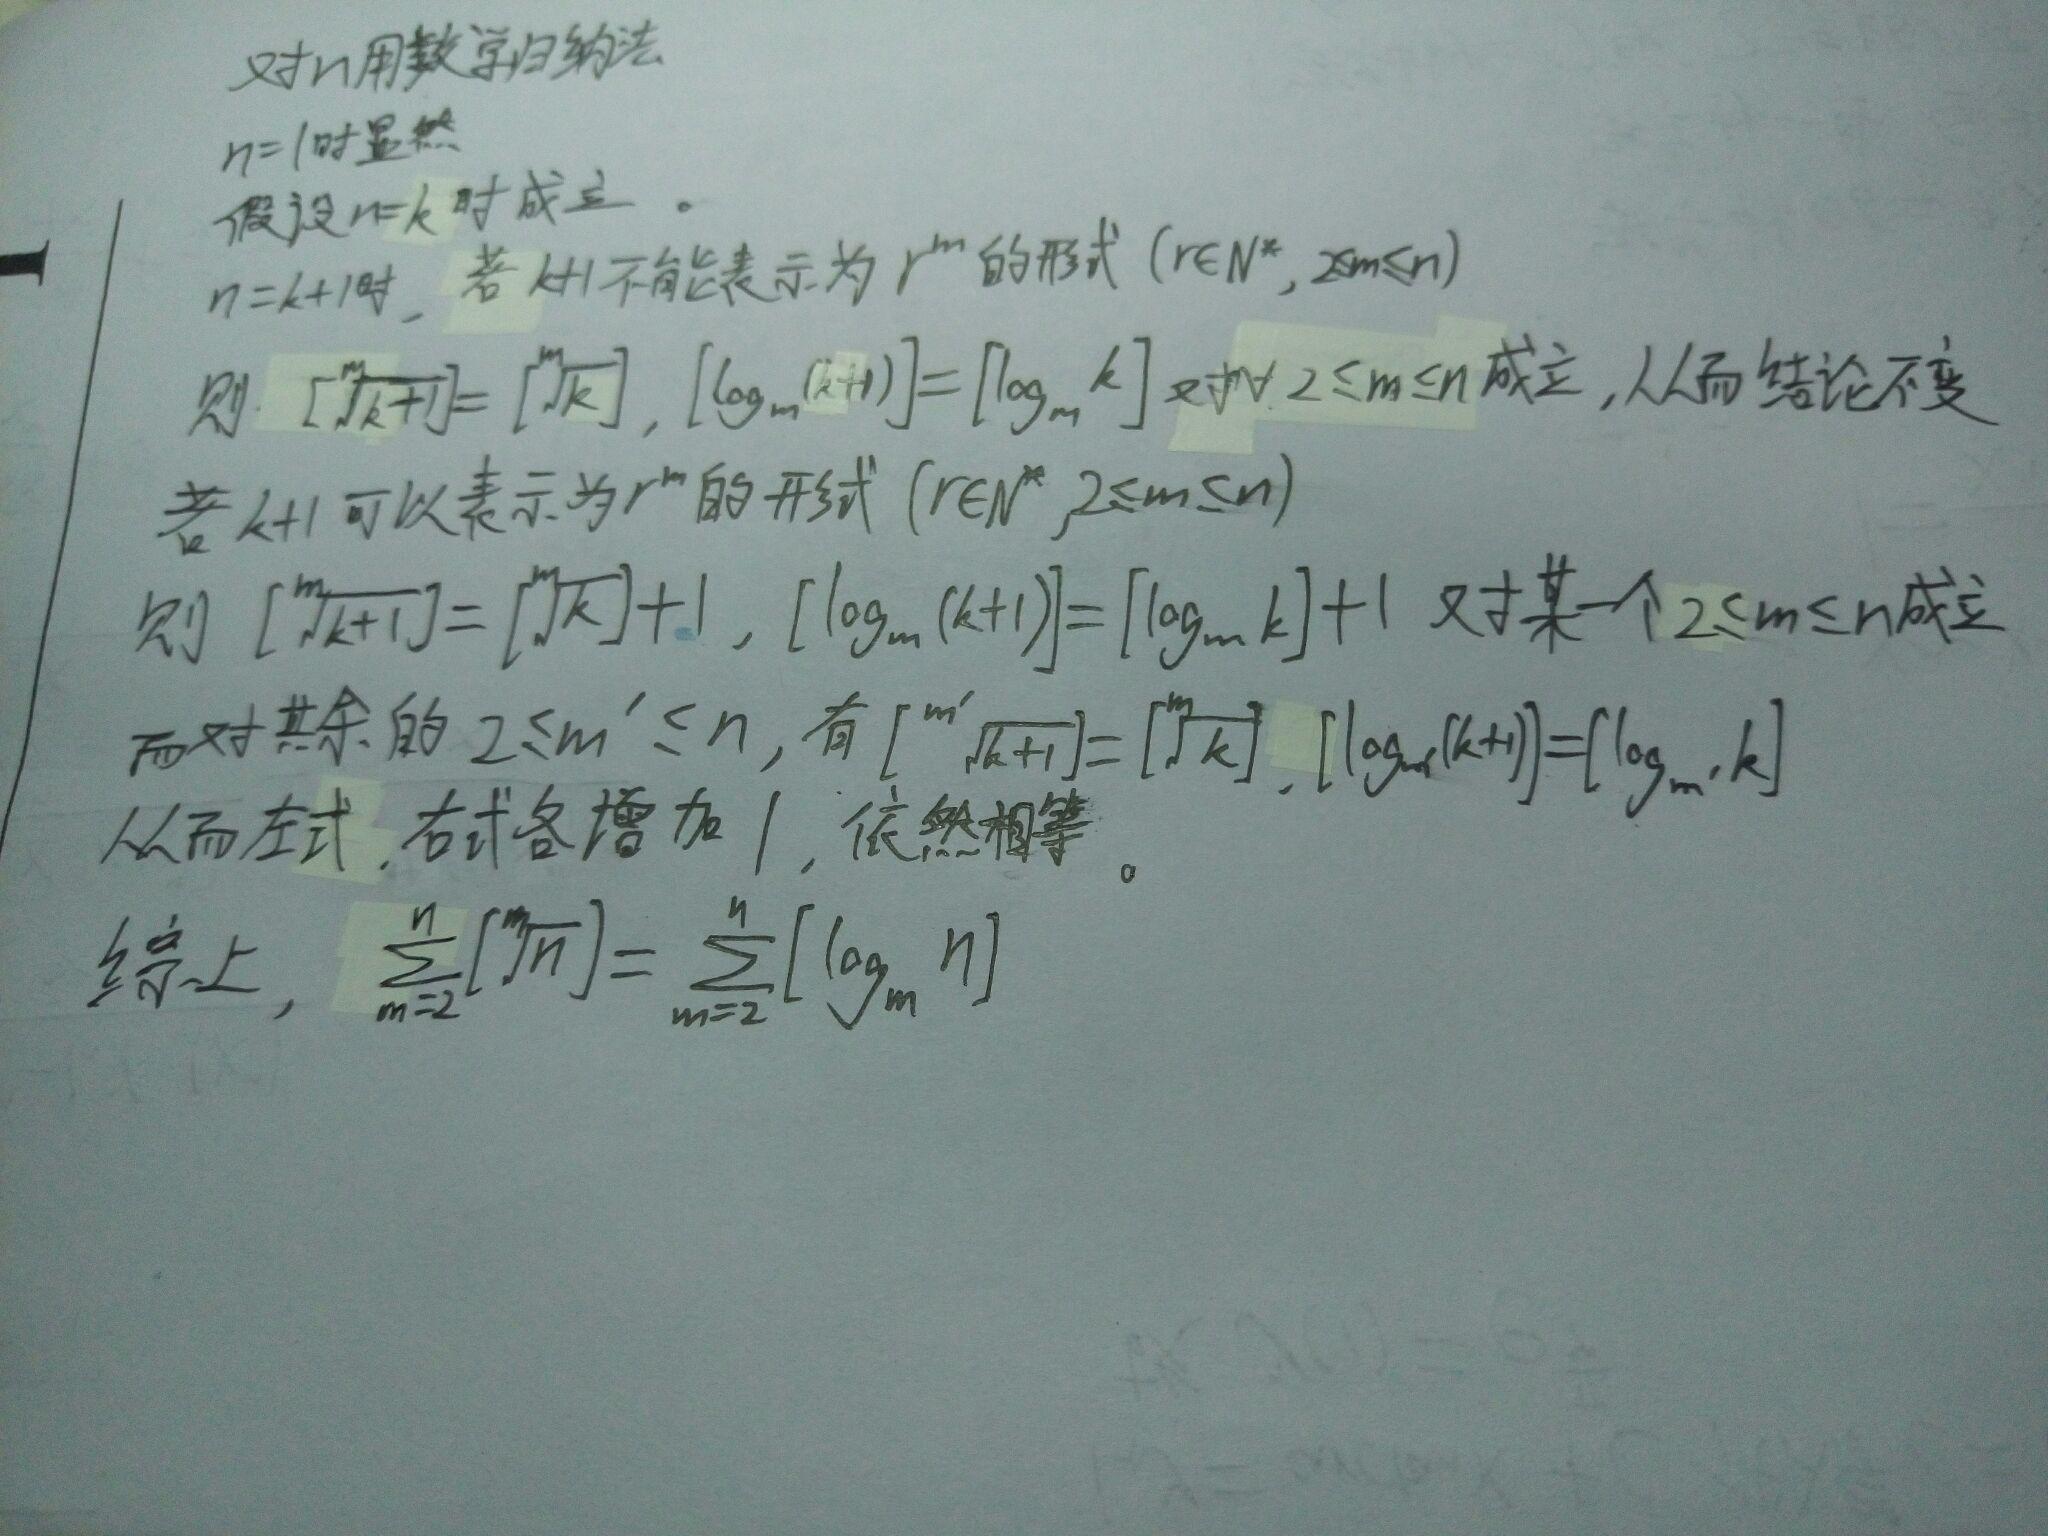 对n用数学归纳法
n=1时显然
假设n=k时成立。
n=k+1时，若k+1不能表示为r^m的形式(r∈N*, 2≤m≤n)
则 [\sqrt[m]{k+1}]=[\sqrt[m]{k}], [log_m(k+1)]=[log_m k] 对∀ 2≤m≤n成立,从而结论不变
若k+1可以表示为r^m的形式(r∈N*, 2≤m≤n)
则 [\sqrt[m]{k+1}]=[\sqrt[m]{k}]+1, [log_m(k+1)]=[log_m k]+1 对某一个2≤m≤n成立
而对其余的2≤m'≤n, 有[\sqrt[m']{k+1}]=[\sqrt[m']{k}], [log_{m'}(k+1)]=[log_{m'} k]
从而左式,右式各增加1,依然相等。
综上, \sum_{m=2}^{n}[\sqrt[m]{n}]=\sum_{m=2}^{n}[log_m n]